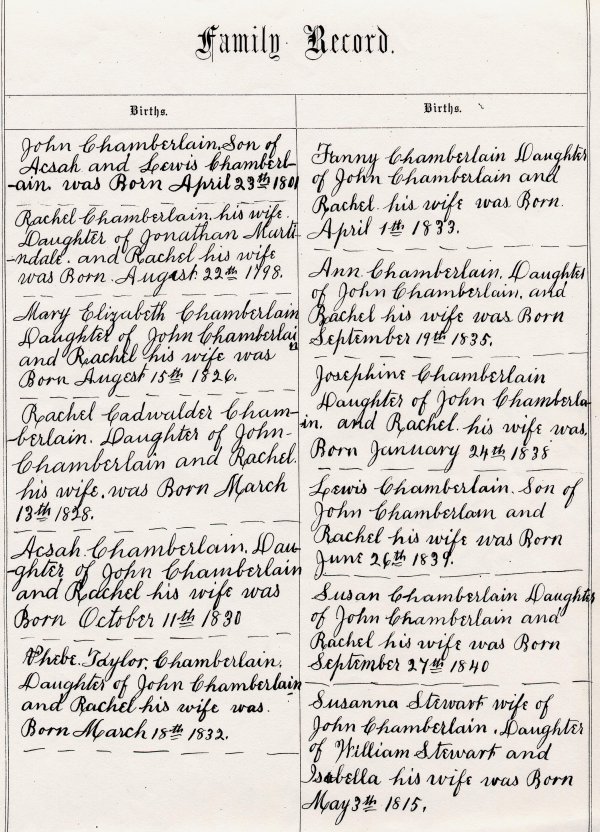 Family Record.
Births.
John Chamberlain, Son of
Acsah and Lewis Chamberl-
-ain. was Born April 23th 1801
Rachel Chamberlain, his wife.
Daughter of Jonathan Marti-
-ndale. and Rachel his wife
was Born. August 22th 1798.
Mary Elizabeth Chamberlain
Daughter of John Chamberlai
n
and Rachel his wife was
Born Augest 15th 1826.
Rachel Cadwalder Cham-
-berlain. Daughter of John-
Chamberlain and Rachel.
his wife. was Born March
13th 1828.
Acsah. Chamberlain. Dau-
-ghter of John Chamberlain
and Rachel his wife was
Born October 11th 1830
Phebe. Taylor. Chamberlain.
Daughter of John Chamberlain
and Rachel his wife was.
Born March 18th 1832.
Births.
Fanny Chamberlain Daughter
of John Chamberlain and
Rachel his wife was Born.
April 1th 1833.
Ann Chamberlain. Daughter
of John Chamberlain. and
Rachel his wife was Born
September 19th 1835.
Josephine Chamberlain
Daughter of John Chamberla-
in. and Rachel. his wife was.
Born January 24th 1838
Lewis Chamberlain. Son of
John Chamberlain and
Rachel his wife was Born
June 26th 1839.
Susan Chamberlain Daughter
of John Chamberlain and
Rachel his wife was Born
September 27th 1840
Susanna Stewart wife of
John Chamberlain. Daughter
of William Stewart and
Isabella his wife was Born
May 3th 1815.